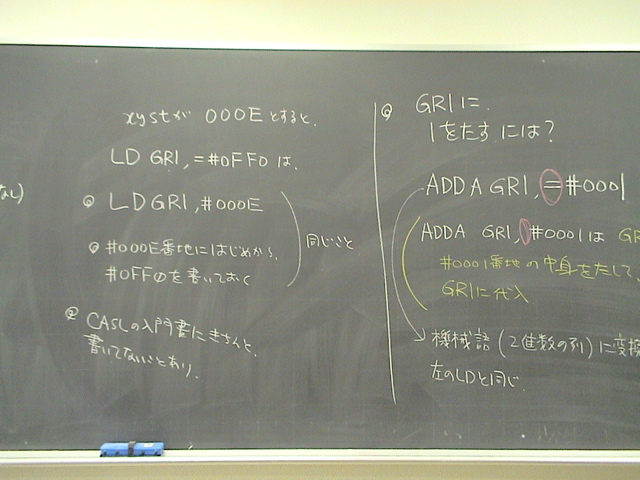 なし)
xystが 000Eとすると、
LD GR1, =#0FF0 は、
LD GR1, #000E
#000E番地にはじめから、
#0FF0を書いておく
同じこと
CASLの入門書にきちんと、
書いてないとあり、
GR1に、
1をたすには?
ADDA GR1, =#0001
ADDA GR1, #0001は GR
#0001番地の中身をたして
GR1に代入
機械語 (2進数の列)に変換
左のLDと同じ.